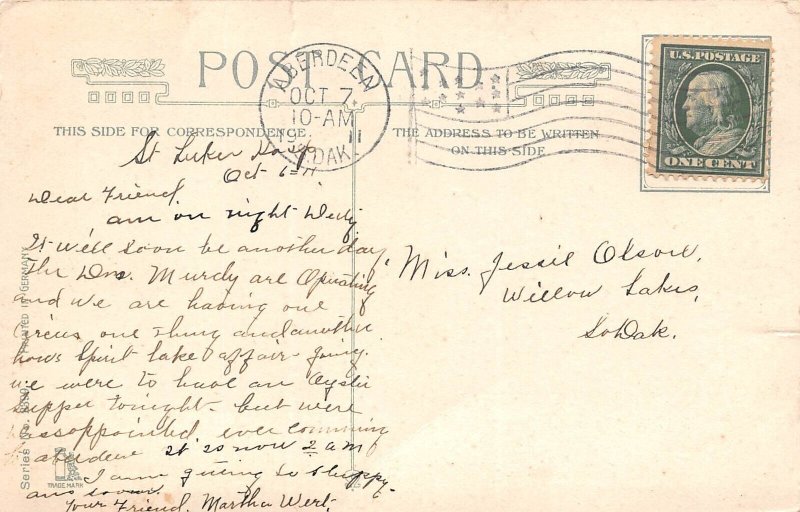 POST CARD
ABERDEEN
OCT 7
10-AM
19 11
S.DAK.
U.S. POSTAGE
ONE CENT
THIS SIDE FOR CORRESPONDENCE
THE ADDRESS TO BE WRITTEN
ON THIS SIDE
St Lukes Hosp
Oct 6-11
Dear Friend
am on night Duty.
It will soon be another day
The Drs. Murdy are Operating
and we are having one
Circus one thing and another
hows Spirit Lake affair going.
we were to have an Oyster
supper tonight. but were
dissoppointed ever comming
Aberdeen it is now 2 am
I am getting so sleepy.
ans soon.
Your Friend. Martha Wert.
Miss. Jessie Olson,
Willow Lakes,
So Dak.
PRINTED IN GERMANY
Series No.
TRADE MARK